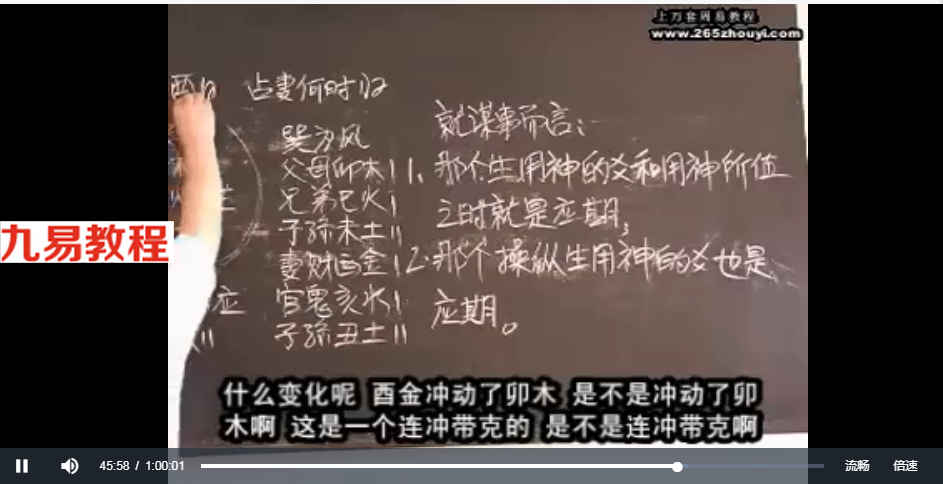 上万套周易教程
www.265zhouyi.com
占妻何时归
就谋事而言：
父母卯木
1、那个生用神的爻和用神所值
兄弟巳火
之时就是应期，
子孙未土
妻财酉金
2、那个操纵生用神的爻也是
应
官鬼亥水
应期。
子孙丑土
九易教程
什么变化呢 酉金冲动了卯木 是不是冲动了卯
木啊 这是一个连冲带克的 是不是连冲带克啊
45:58 / 1:00:01
流畅
倍速